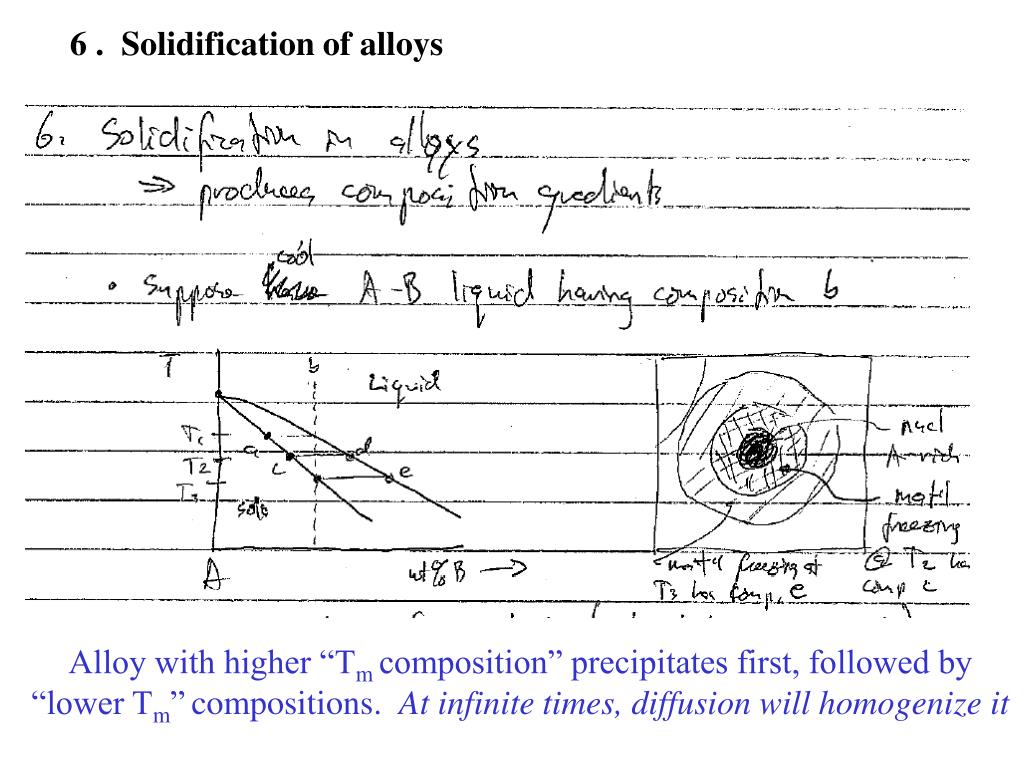 6 . Solidification of alloys
6. Solidification in alloys
⇒ produces composition gradients
cool
• Suppose A-B liquid having composition b
T b Liquid
T1 a d nucl
T2 c e A-rich
T3 mat'l
solid freezing
A wt% B → mat'l freezing at @ T2 has
T3 has comp. e comp c
Alloy with higher “Tm composition” precipitates first, followed by
“lower Tm” compositions. At infinite times, diffusion will homogenize it